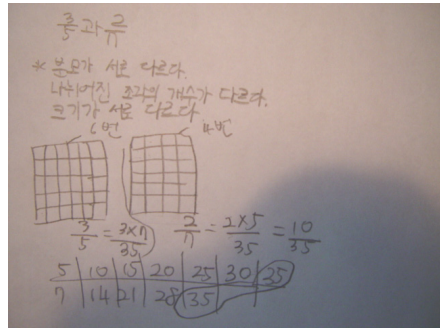 3/5과 2/7
* 분모가 서로 다르다.
나뉘어진 조각의 개수가 다르다.
크기가 서로 다르다.
6번 4번
3/5 = 3×7/35 2/7 = 2×5/35 = 10/35
5 10 15 20 25 30 35
7 14 21 28 35